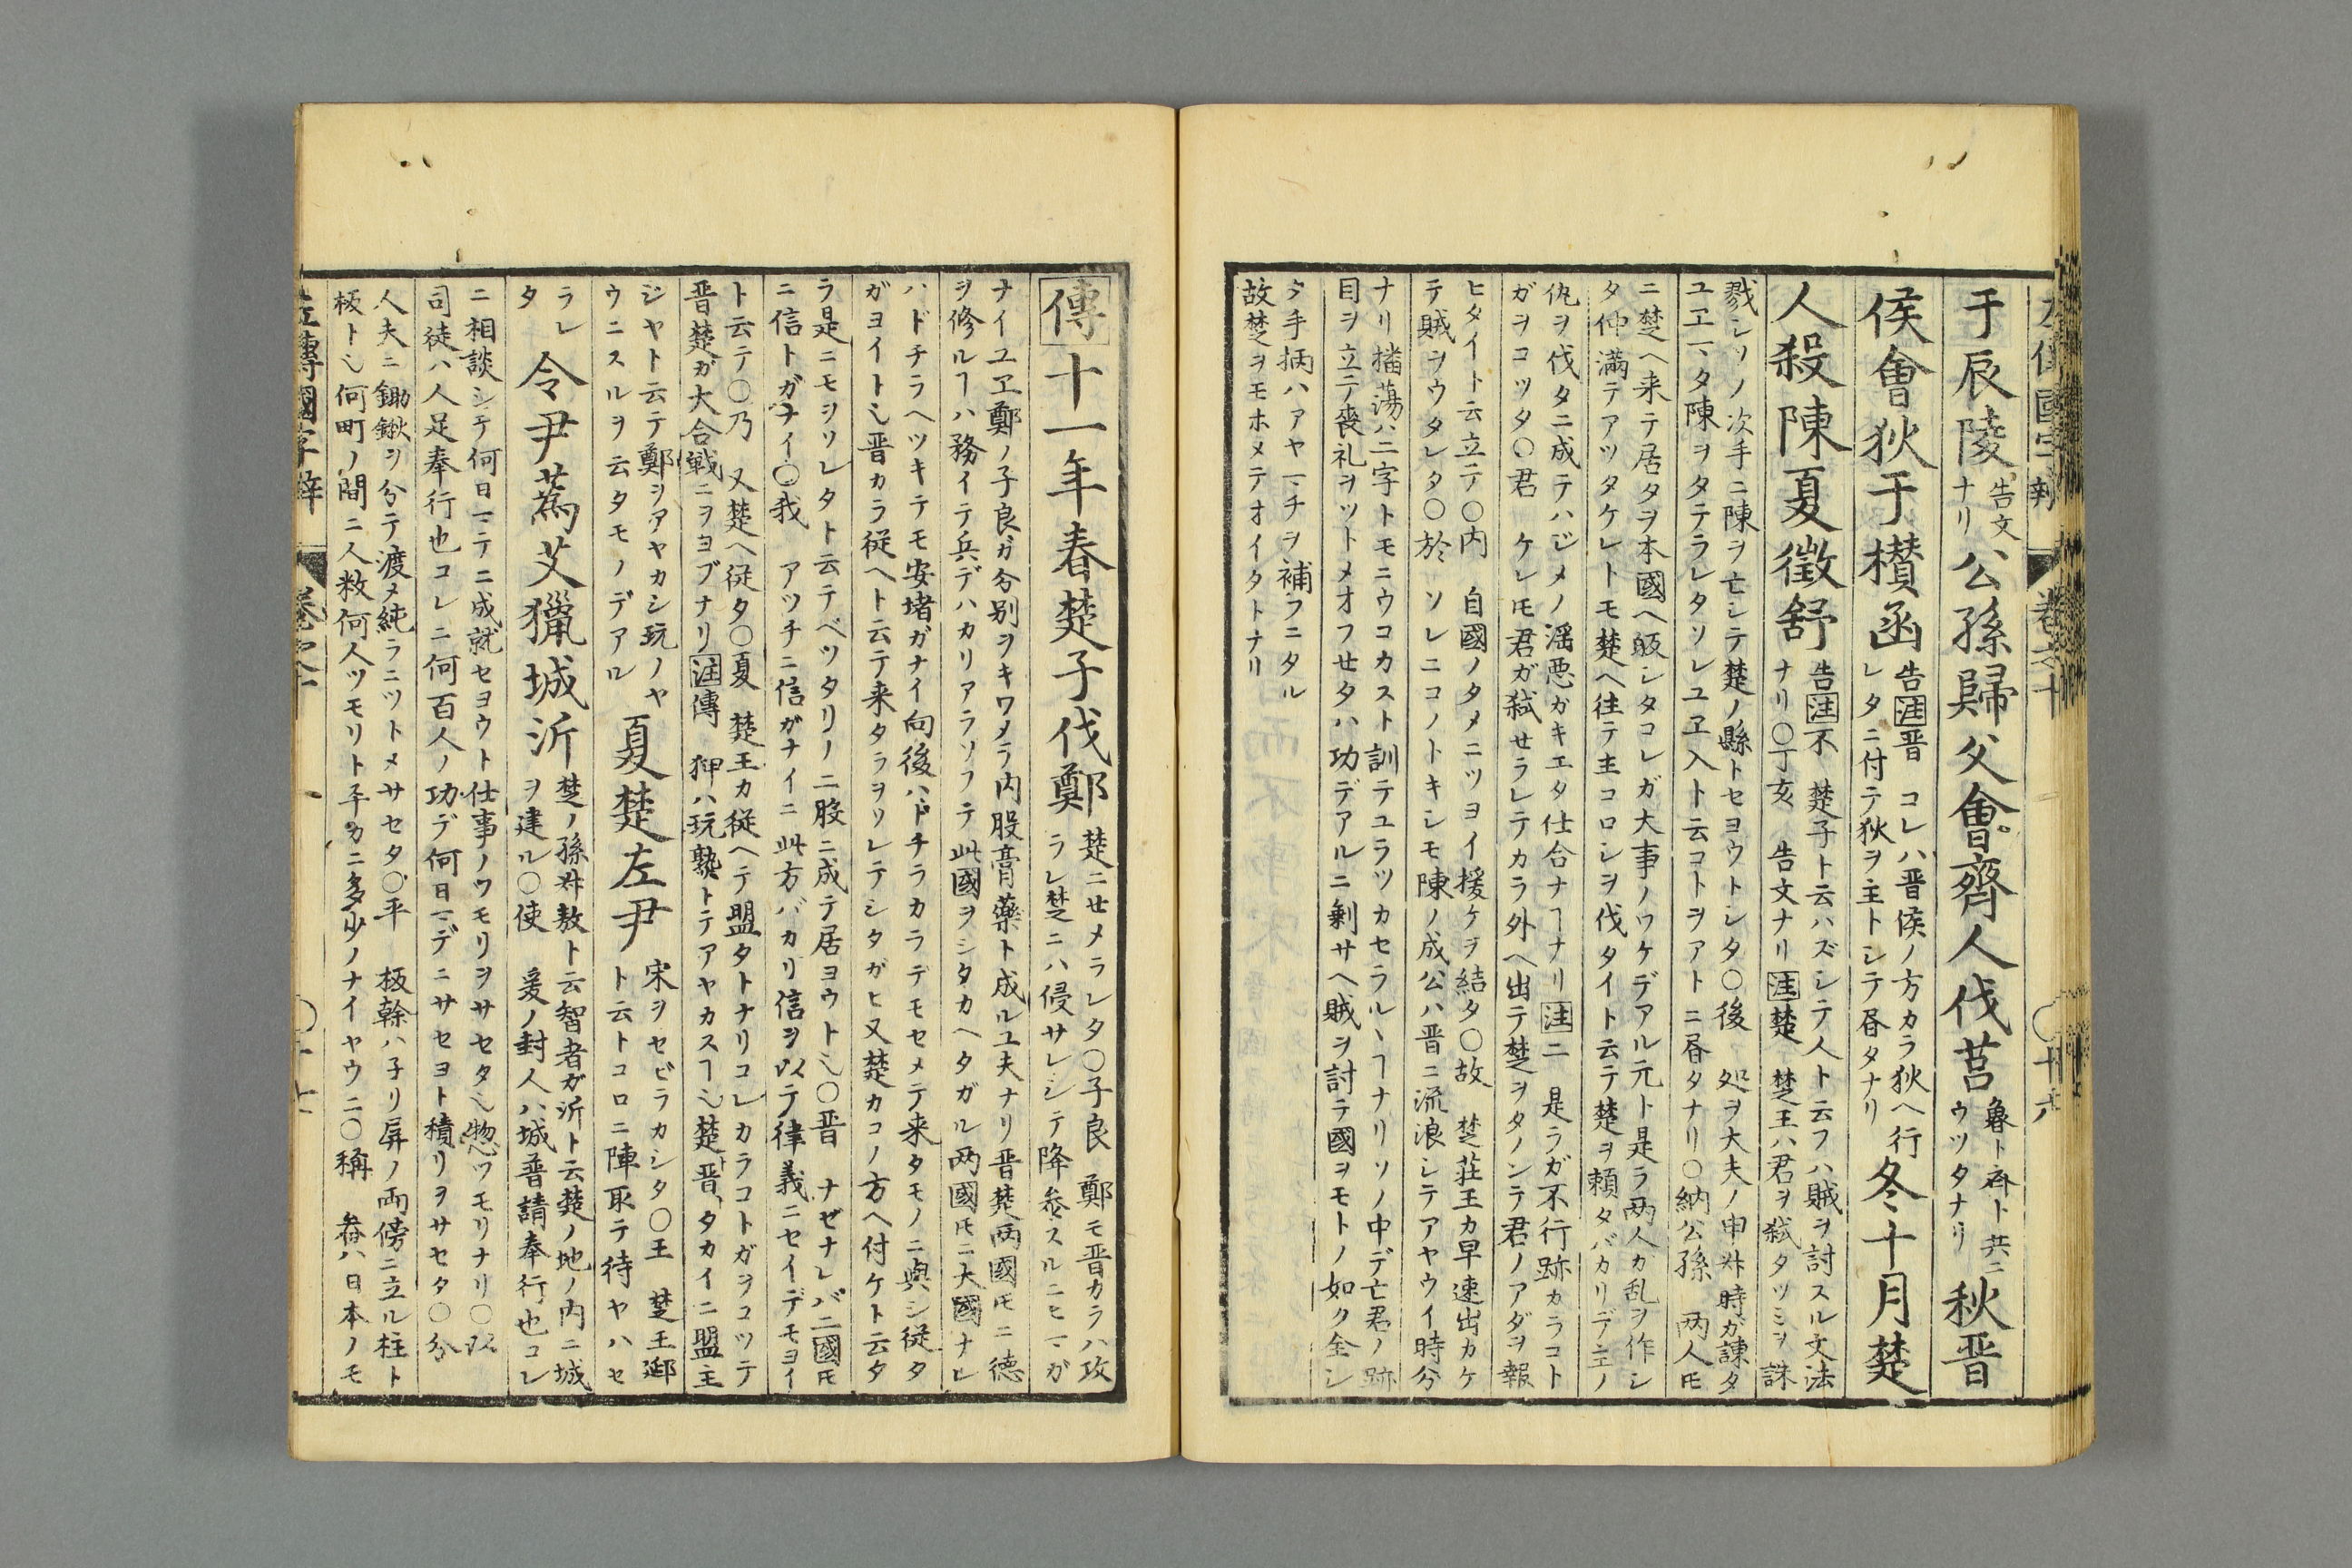 左傳國字辨 巻之十 〇十六
于辰陵 告文ナリ 公孫歸父會齊人伐莒 魯ト斉ト共ニウツタナリ 秋晋
侯會狄于欑函 告注晋 コレハ晋侯ノ方カラ狄ヘ行レタニ付テ狄ヲ主トシテ㫺タナリ 冬十月楚
人殺陳夏徵舒 告注不 楚子ト云ハズシテ人ト云フハ賊ヲ討スル文法ナリ〇丁亥 告文ナリ注楚 楚王ハ君ヲ弑タツミヲ誅
戮シソノ次手ニ陳ヲ亡シテ楚ノ縣トセヨウトシタ〇後 処ヲ大夫ノ申叔時ガ諌タ
ユヱヽタ陳ヲタテラレタソレユヱ入ト云コトヲアトニ㫺タナリ〇納公孫 両人ㇳモ
ニ楚ヘ来テ居タヲ本國ヘ皈シタコレガ大事ノワケデアル元ト是ラ両人カ乱ヲ作シ
タ仲満テアツタケレトモ楚ヘ往テ主コロシヲ伐タイト云テ楚ヲ頼タバカリデ主ノ
仇ヲ伐タニ成テハジメノ滛悪ガキエタ仕合ナヿナリ注二 是ラガ不行跡カラコト
ガヲコツタ〇君 ケレㇳモ君ガ弑セラレテカラ外ヘ出テ楚ヲタノンテ君ノアダヲ報
ヒタイト云立テ〇内 自國ノタメニツヨイ援ケヲ結タ〇故 楚荘王カ早速出カケ
テ賊ヲウタレタ〇於 ソレニコノトキシモ陳ノ成公ハ晋ニ流浪シテアヤウイ時分
ナリ播蕩ハ二字トモニウコカスト訓テユラツカセラルヽヿナリソノ中デ亡君ノ跡
目ヲ立テ喪礼ヲツトメオフセタハ功デアルニ剰サヘ賊ヲ討テ國ヲモトノ如ク全シ
タ手柄ハアヤマチヲ補フニタル
故楚ヲモホメテオイタトナリ
傳十一年春楚子伐鄭 楚ニセメラレタ〇子良 鄭モ晋カラハ攻ラレ楚ニハ侵サレシテ降参スルニヒマガ
ナイユヱ鄭ノ子良ガ分別ヲキワメラ内股膏藥ト成ルユ夫ナリ晋楚両國ㇳモニ徳
ヲ修ルヿハ務イテ兵デハカリアラソフテ此國ヲシタカヘタガル両國ㇳモニ大國ナレ
ハドチラヘツキテモ安堵ガナイ向後ハドチラカラデモセメテ来タモノニ與シ従タ
ガヨイトシ晋カラ従ヘト云テ来タラヲソレテシタガヒ又楚カコノ方ヘ付ケト云タ
ラ是ニモヲソレタト云テベツタリノ二股ニ成テ居ヨウトシ〇晋 ナゼナレバ二國ㇳモ
ニ信トガナイ〇我 アツチニ信ガナイニ此方バカリ信ヲ以テ律義ニセイデモヨイ
ト云テ〇乃 又楚ヘ従タ〇夏 楚王カ従ヘテ盟タトナリコレカラコトガヲコツテ
晋楚ガ大合戦ニヲヨブナリ注傳 狎ハ玩熟トテアヤカスヿシ楚晋タカイニ盟主
ジヤト云テ鄭ヲアヤカシ玩ノヤウニスルヲ云タモノデアル 夏楚左尹 宋ヲセビラカシタ〇王 楚王郔ト云トコロニ陣取テ待ヤハセ
ラレタ 令尹蔿艾獵城沂 楚ノ孫叔敖ト云智者ガ沂ト云楚ノ地ノ内ニ城ヲ建ル〇使 爰ノ封人ハ城普請奉行也コレ
ニ相談シテ何日マテニ成就セヨウト仕事ノツモリヲサセタシ惣ツモリナリ〇以
司徒ハ人足奉行也コレニ何百人ノ功デ何日マデニサセヨト積リヲサセタ〇分
人夫ニ鋤鍬ヲ分テ渡メ純ラニツトメサセタ〇平 板榦ハ子リ屏ノ両傍ニ立ル柱ト
板トシ何町ノ間ニ人数何人ツモリト平カニ多少ノナイヤウニ〇稱 畚ハ日本ノモ
左傳國字辨 巻之十